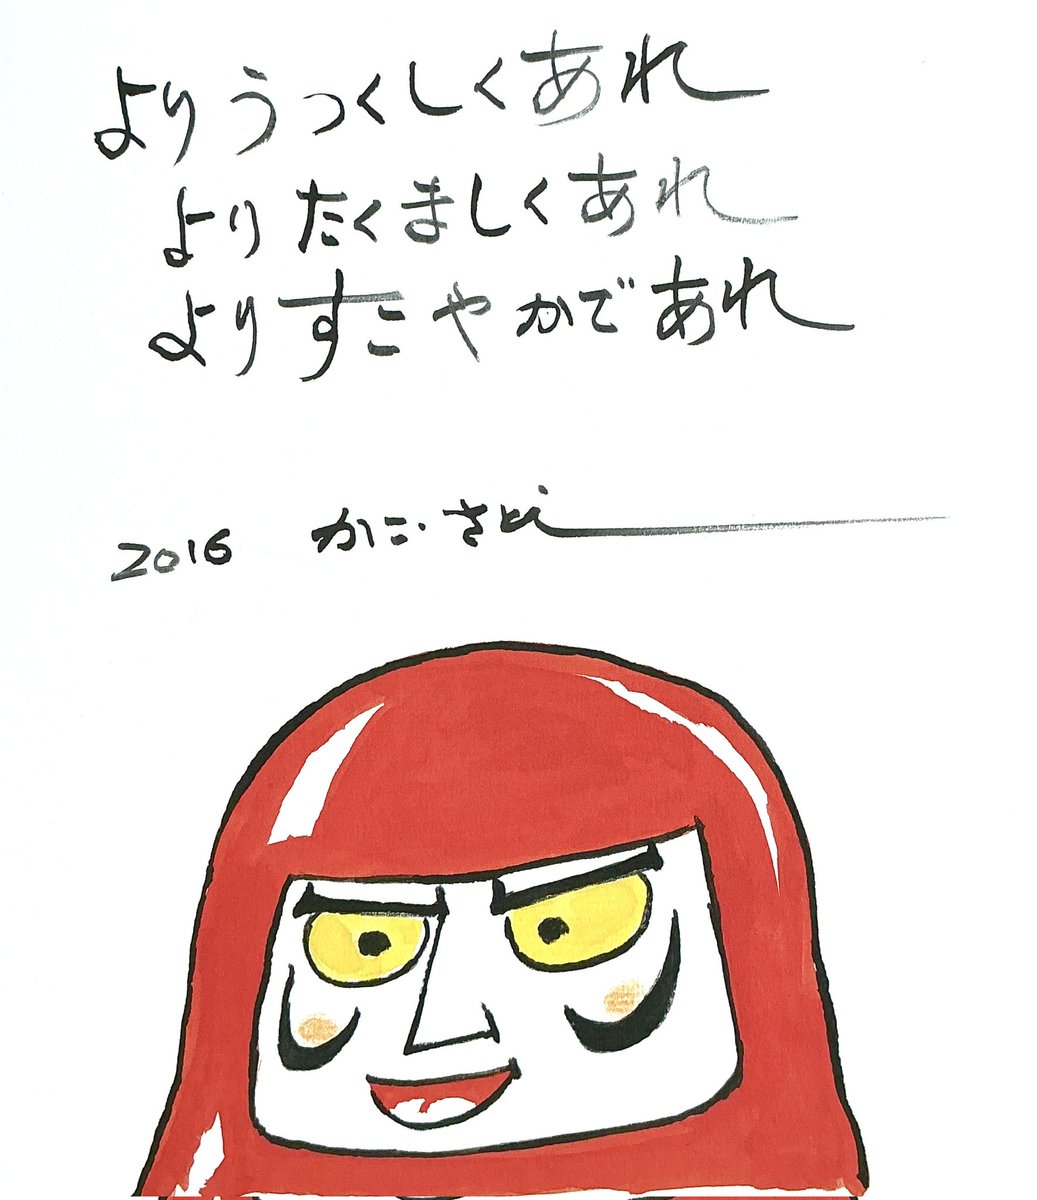 よりうつくしくあれ
よりたくましくあれ
よりすこやかであれ
2016 かこ・さとし